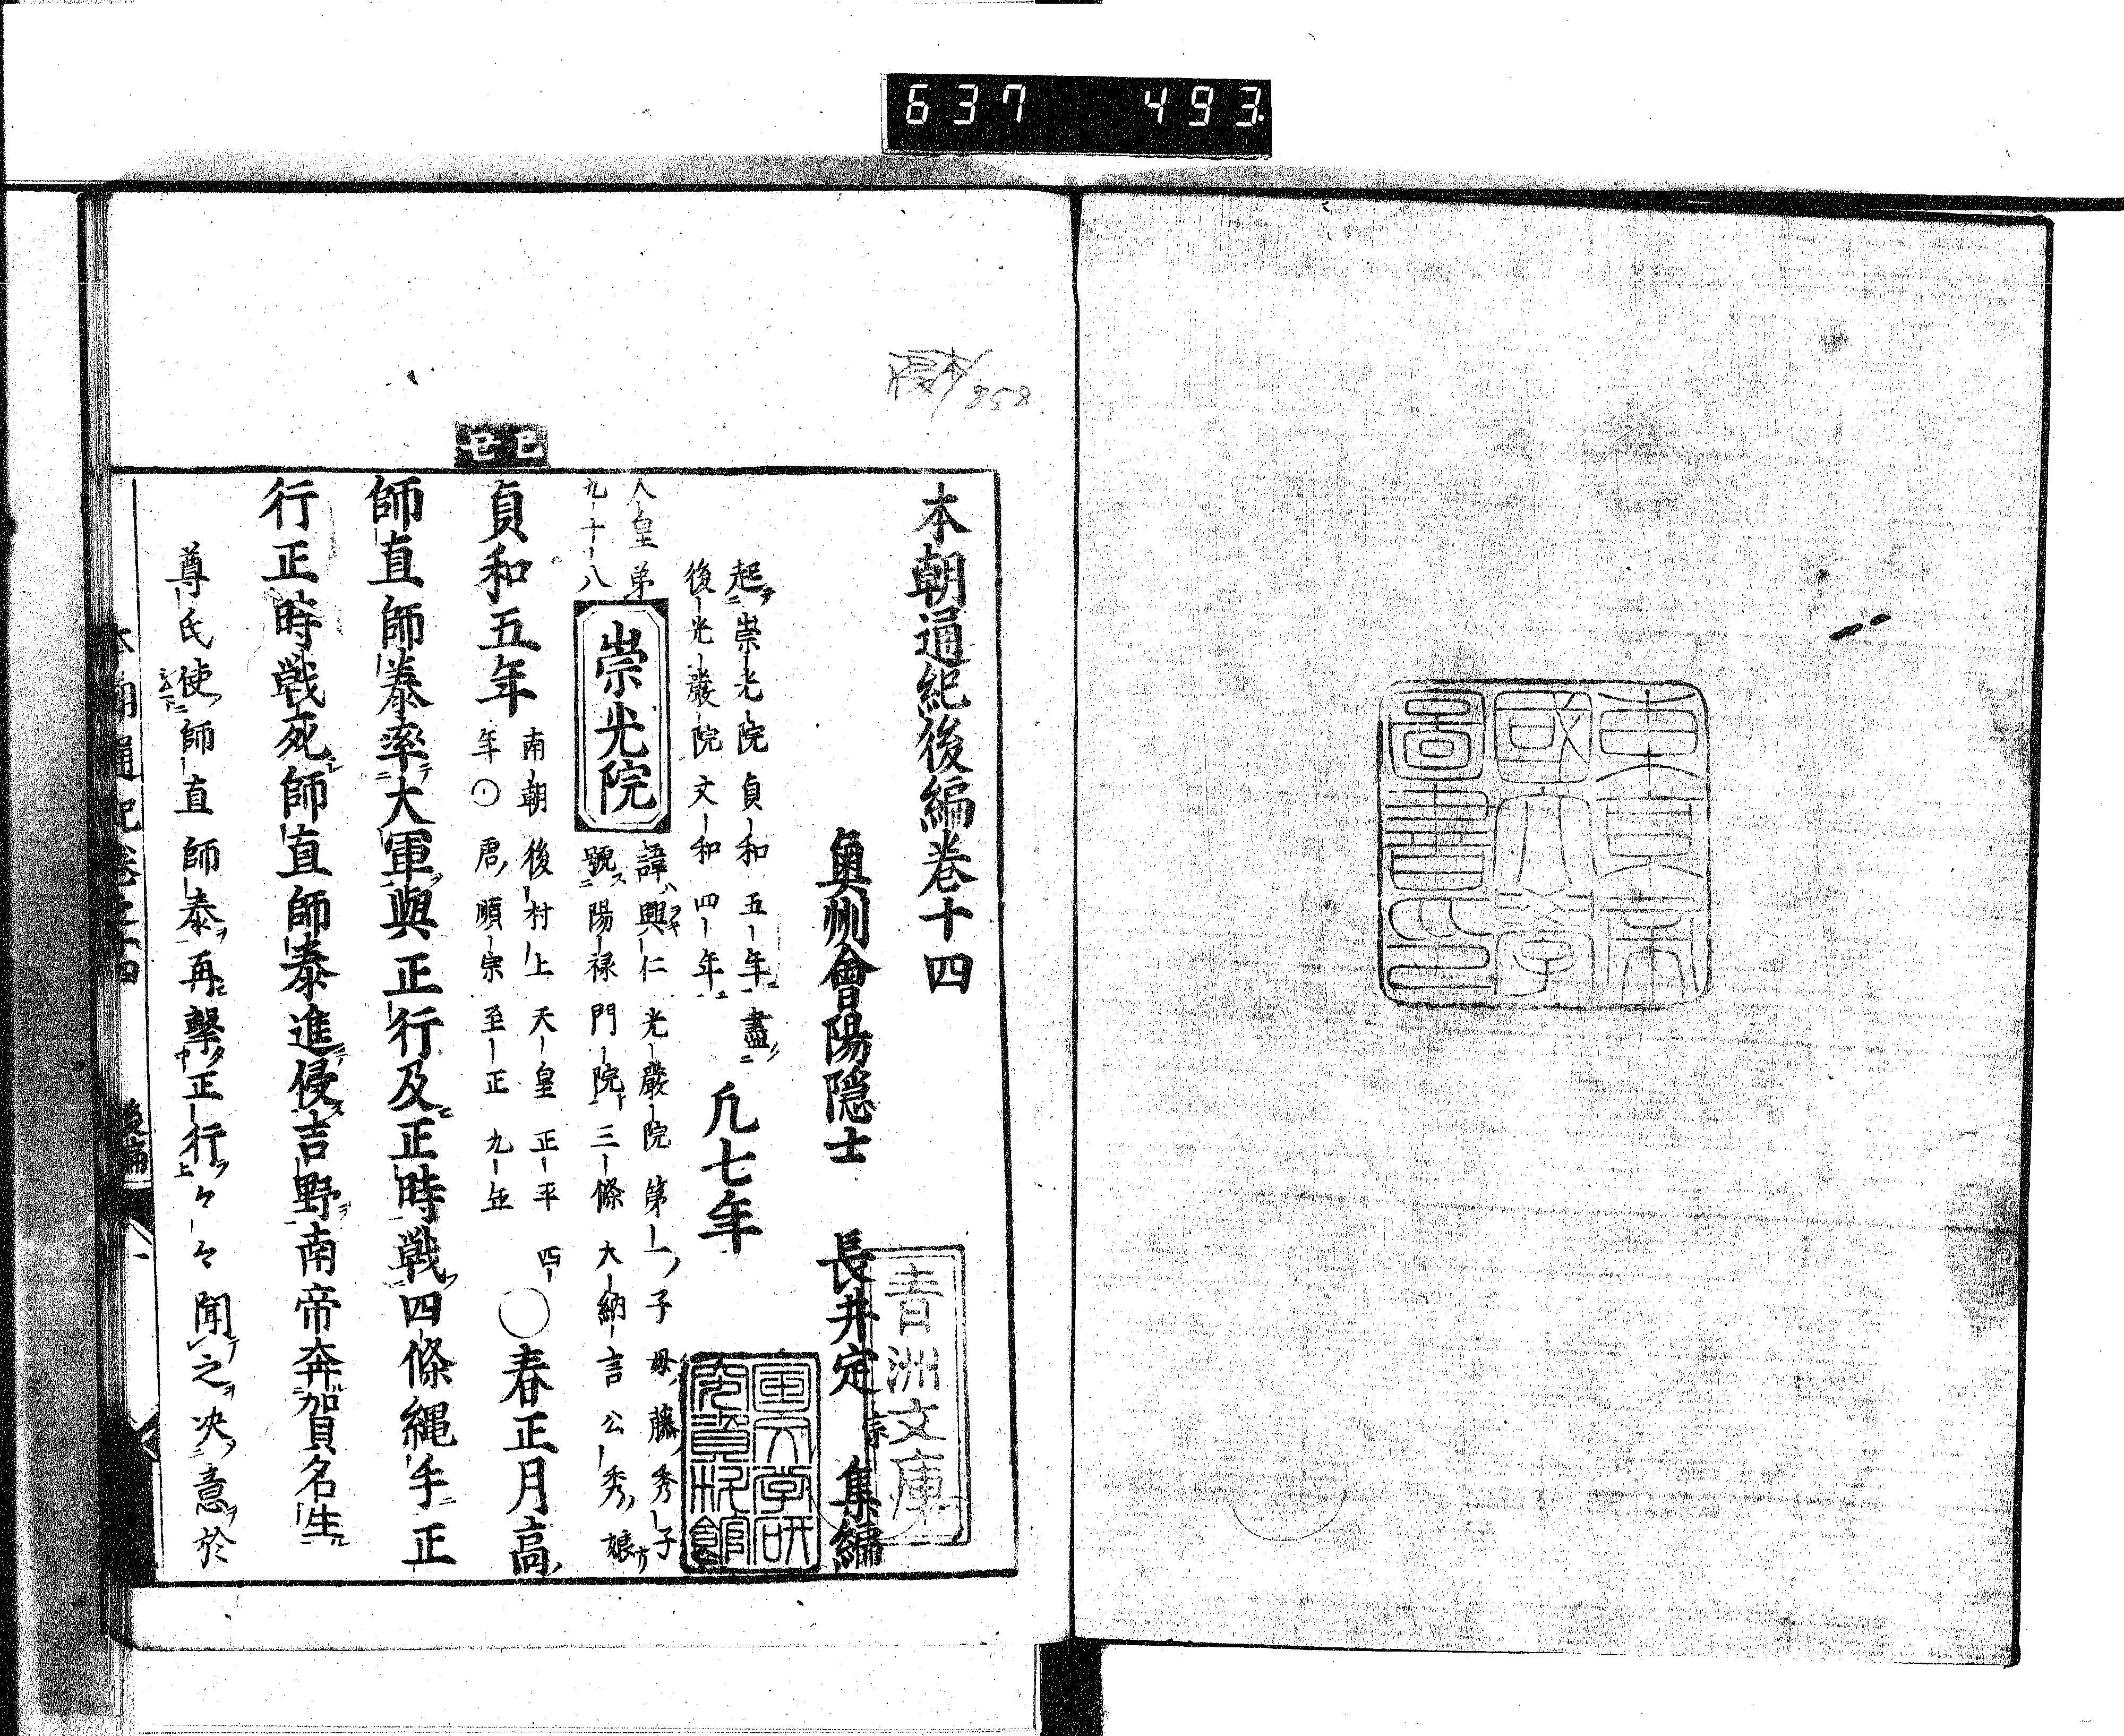 637 493
東京帝
國大學
圖書印
858
本朝通紀後編卷十四
奥州會陽隠士 長井定宗 集編
青洲文庫
起崇光院貞和五年盡
後光嚴院文和四年
凢七年
人皇弟
九十八
崇光院
諱興仁光嚴院第一子母藤秀子
號陽禄門院三條大納言公秀娘
己丑
貞和五年
南朝後村上天皇正平四
年〇君順宗至正九年
〇春正月高
師直師泰率大軍與正行及正時戰四條縄手正
行正時戰死師直師泰進侵吉野南帝奔賀名生
尊氏使師直師泰再擊正行々々聞之决意於
本朝通紀卷之十四 後編 一